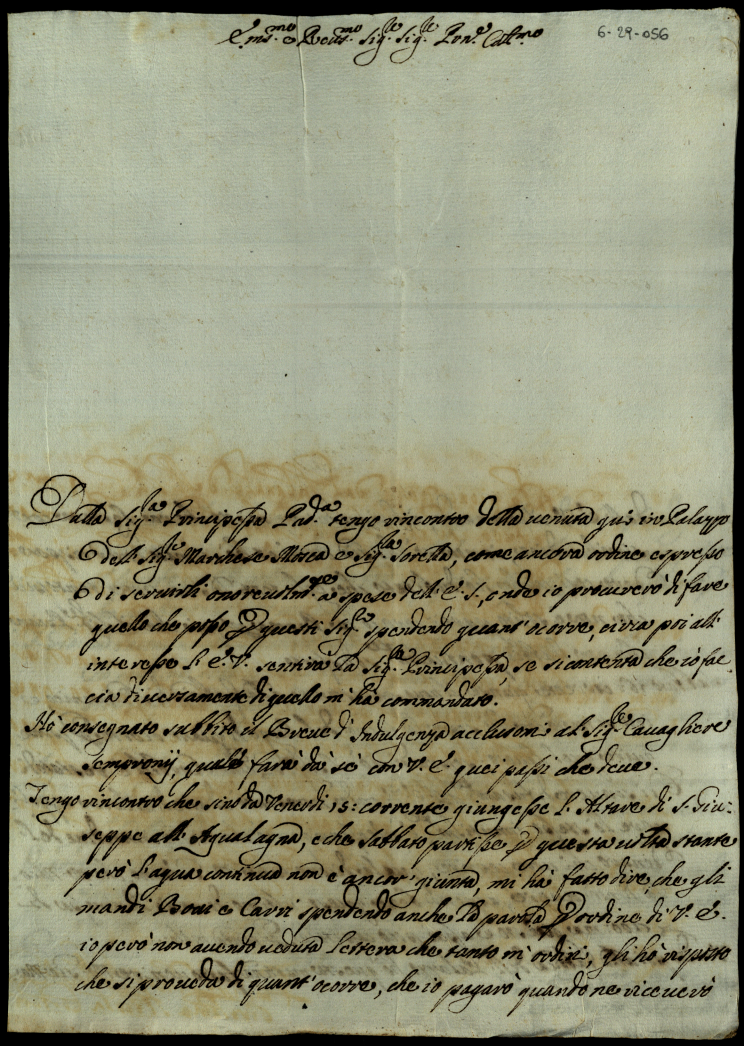 Em.mo e Reu.mo Sig.re Sig.re Pron.e Coll.mo
6-29-056
Dalla Sig.ra Principessa Pad.a tengo rincontro della uenuta qui in Palazzo
dell Sig.re Marchese Mosca e Sig.ra Sorella, come ancora ordine espresso
di seruirli onoreuolm.te a spese dell' E. S., onde io procurerò di fare
quello che posso p questi Sig.ri spendendo quant' ocorre, circa poi all'
interesse L' E. V. sentirà la Sig.ra Principessa, se si contenta che io fac-
cia diuersamente di quello m' ha commandato.
Hò consegnato subbito il Breue d' Indulgenza acclusomi al Sig.re Cauagliere
Sempronij, quale farà da sè con V. E. quei passi che deue.
Tengo rincontro che sino da Venerdi 15: corrente giungesse L' Altare di S. Giu-
seppe all' Aqualagna, e che Sabbato partisse, p questa uolta stante
però l'aqua continua non è ancor' giunta, mi hà fatto dire, che gli
mandi Boui e Carri spendendo anche la parola p ordine di V. E.
io però non auendo ueduta Lettera che tanto m' ordini, gli hò risposto
che si proueda di quant' ocorre, che io pagarò quando ne riceuerò